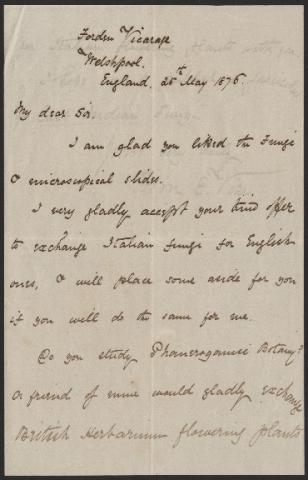 Forden Vicarage
Welshpool.
England. 25th May 1876.
My dear Sir
I am glad you liked the Fungi
& microscopical slides.
I very gladly accept your kind offer
to exchange Italian Fungi for English
ones, & will place some aside for you
if you will do the same for me.
Do you study Phanerogamic Botany?
a friend of mine would gladly exchange
British Herbarium flowering plants